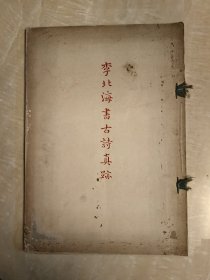 李北海書古詩真跡